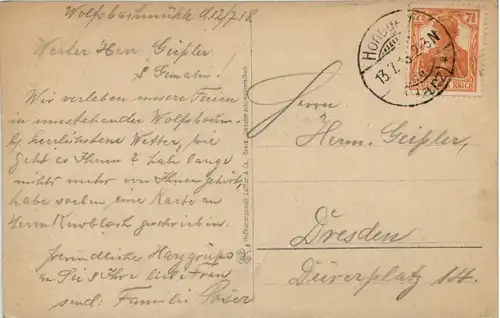 Wolfsbachmühle d. 12/7 18.
Werter Herr Geißler
& Gemalin!
Wir verleben unsere Ferien
in umstehender Wolfsbachm.
b. herrlichstem Wetter, wie
geht es Ihnen? habe lange
nichts mehr von Ihnen gehört,
habe soeben eine Karte an
Herrn Knoblach geschrieben.
freundliche Harzgrüße
an Sie & Ihre liebe Frau
send. Familie Poser
Herrn
Herm. Geißler,
Dresden
Dürerplatz 14.
13.7.18
(HARZ)
7½
REICH